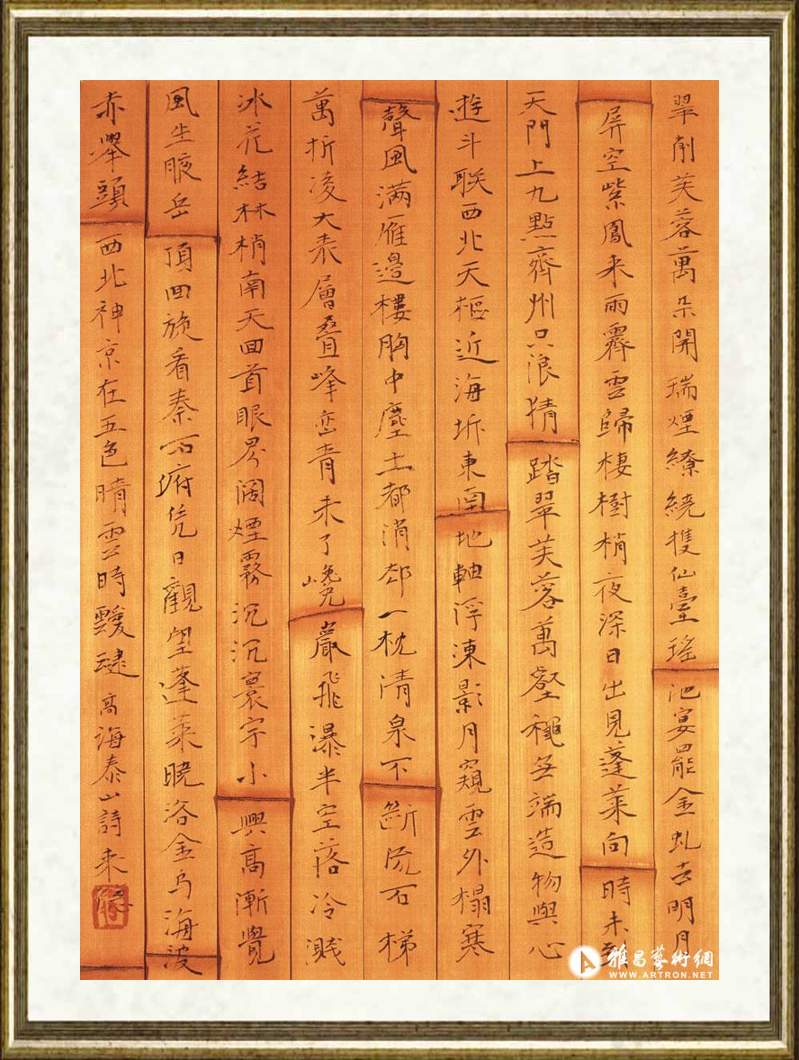 翠削芙蓉萬朵開瑞煙繚繞仙臺瑤池宴罷金虬去明月
屏空紫鳳来雨霽雲歸棲樹梢夜深日出見蓬萊向時未到
天門上九點齊州只浪猜踏翠芙蓉萬壑穐無端造物與心
遊斗联西北天樞近海坼東南地軸浮凍影月窺雲外榻寒
聲風满雁邊樓胸中塵土都消却一枕清泉不斷流石梯
萬折凌大層疊峰巒青未了巉巖飛瀑半空落冷濺
冰花結林梢南天回首眼界闊煙霧沉沉寰宇小興高漸覺
風生腋岳頂回旋看秦石府凭日觀望蓬萊曉浴金烏海波
赤舉頭西北神京在五色晴雲時靉靆高海泰山詩来德
雅昌藝術網
WWW.ARTRON.NET